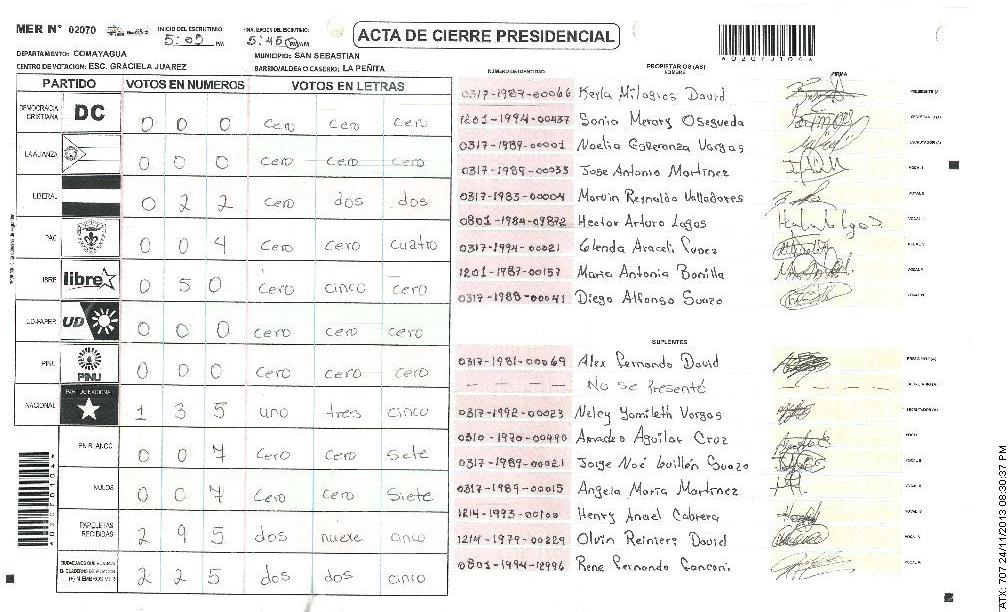 MER N° 02070
INICIO DEL ESCRUTINIO: 5:09 PM
5:45 PM/AM
ACTA DE CIERRE PRESIDENCIAL
DEPARTAMENTO: COMAYAGUA
MUNICIPIO: SAN SEBASTIAN
CENTRO DE VOTACION: ESC. GRACIELA JUAREZ
BARRIO/ALDEA O CASERIO: LA PEÑITA
PARTIDO VOTOS EN NUMEROS VOTOS EN LETRAS
DEMOCRACIA CRISTIANA DC 0 0 0 cero cero cero
LA ALIANZA 0 0 0 cero cero cero
LIBERAL 0 2 2 cero dos dos
PAC 0 0 4 cero cero cuatro
LIBRE libre 0 5 0 cero cinco cero
UD-FAPER UD 0 0 0 cero cero cero
PINU PINU 0 0 0 cero cero cero
NACIONAL PARTIDO NACIONAL 1 3 5 uno tres cinco
EN BLANCO 0 0 7 cero cero siete
NULOS 0 0 7 cero cero siete
PAPELETAS RECIBIDAS 2 9 5 dos nueve cinco
CIUDADANOS QUE VOTARON EN CUADERNO DE VOTACION (+) MIEMBROS MER 2 2 5 dos dos cinco
NUMERO DE IDENTIDAD PROPIETARIOS (AS) NOMBRE FIRMA
0317-1987-00066 Keyla Milagros David PRESIDENTE (A)
1201-1994-00437 Sonia Merary Osegueda SECRETARIO (A)
0317-1989-00001 Noelia Esperanza Vargas ESCRUTADOR (A)
0317-1989-00033 Jose Antonio Martinez VOCAL I
0317-1983-00004 Marvin Reynaldo Valladares VOCAL II
0801-1984-09872 Hector Arturo Lagos
0317-1994-00021 Glenda Araceli
1201-1987-00157 Maria Antonia Bonilla
0317-1988-00041 Diego Alfonso Suazo
SUPLENTES
0317-1981-00069 Alex Fernando David PRESIDENTE (A)
No se Presentó SECRETARIO (A)
0317-1992-00023 Nelcy Yamileth Vargas ESCRUTADOR (A)
0310-1970-00490 Amadeo Aguilar Cruz
0317-1989-00021 Jorge Noé Guillén Suazo
0317-1989-00015 Angela Maria Martinez
1214-1993-00100 Henry Anael Cabrera
1214-1979-00229 Olvin Reiniery David
0801-1994-12996 Rene Fernando
ATX: 707 24/11/2013 08:30:37 PM